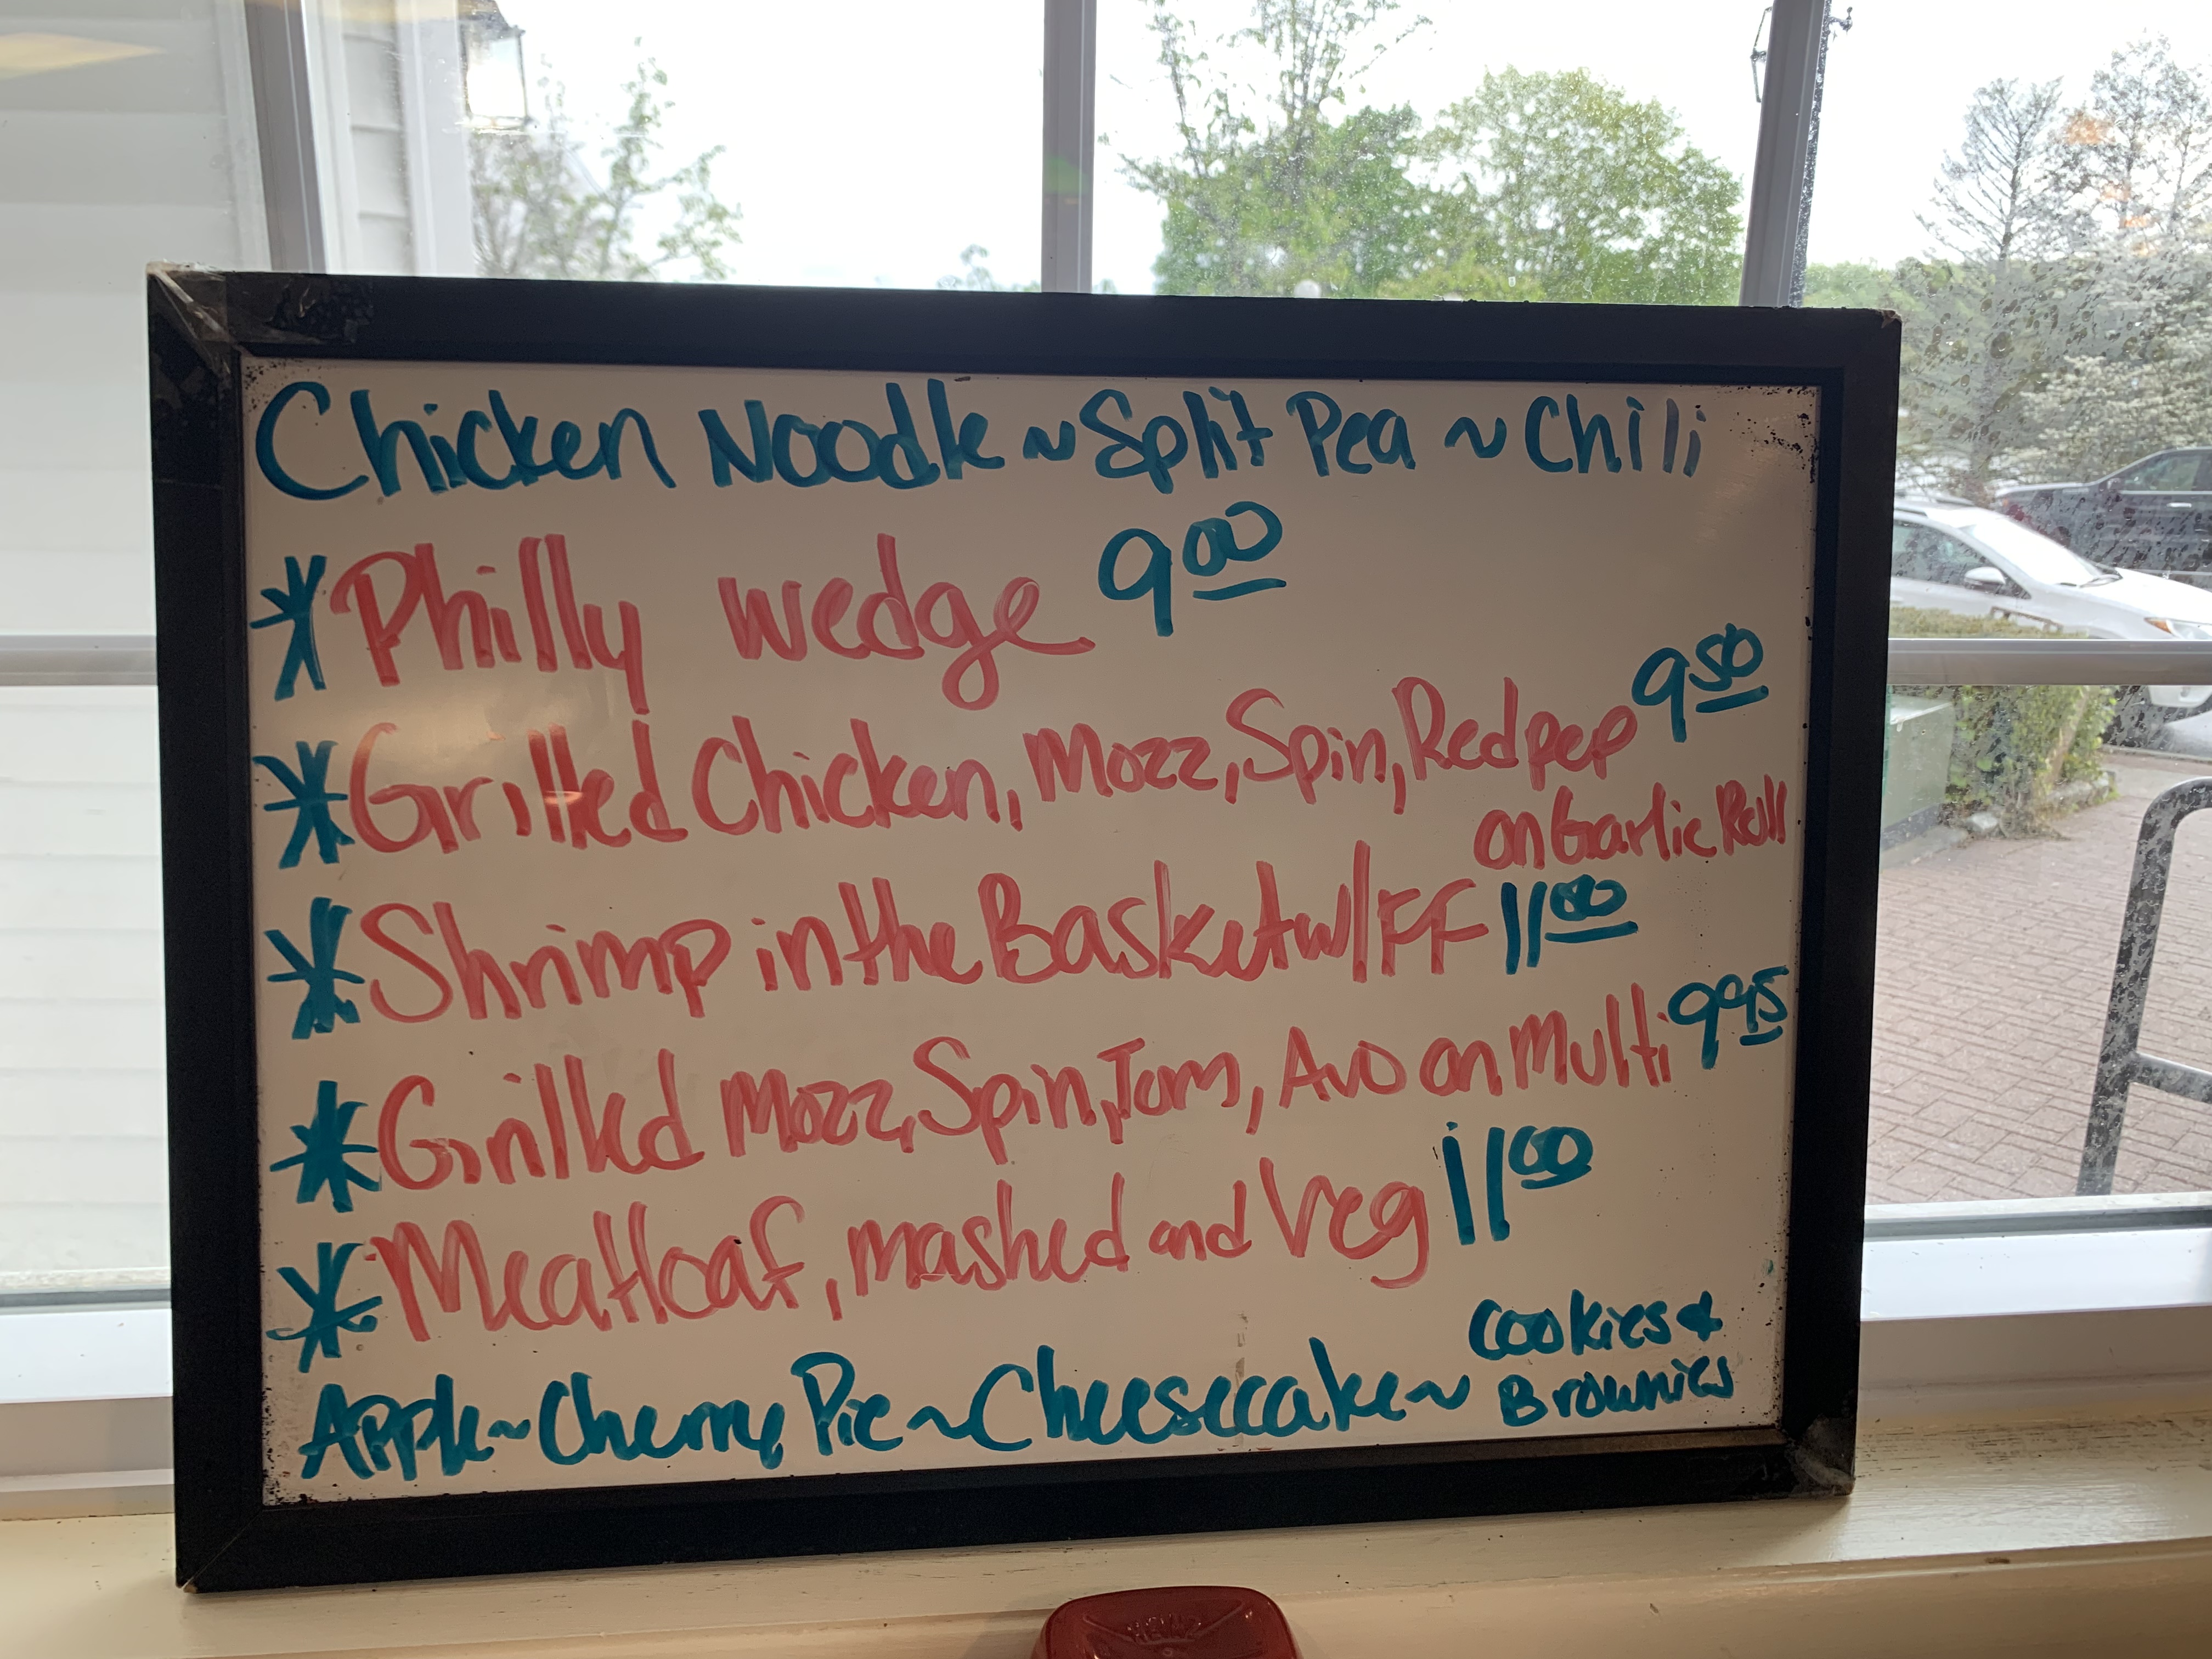 Chicken Noodle ~ Split Pea ~ Chili
* Philly wedge 9.00
* Grilled Chicken, Mozz, Spin, Red pep 9.50
on Garlic Roll
* Shrimp in the Basket w/ FF 11.00
* Grilled Mozz, Spin, Tom, Avo on Multi 9.95
* Meatloaf, mashed and Veg 11.00
Apple ~ Cherry Pie ~ Cheesecake ~ Cookies & Brownies
HEINZ